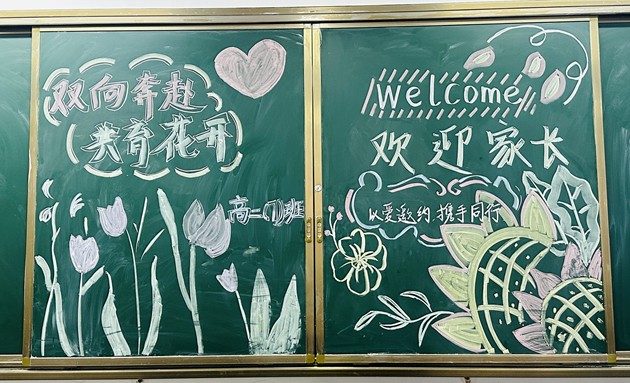 双向奔赴
共育花开
高二(1)班
welcome
欢迎家长
以爱邀约 携手同行